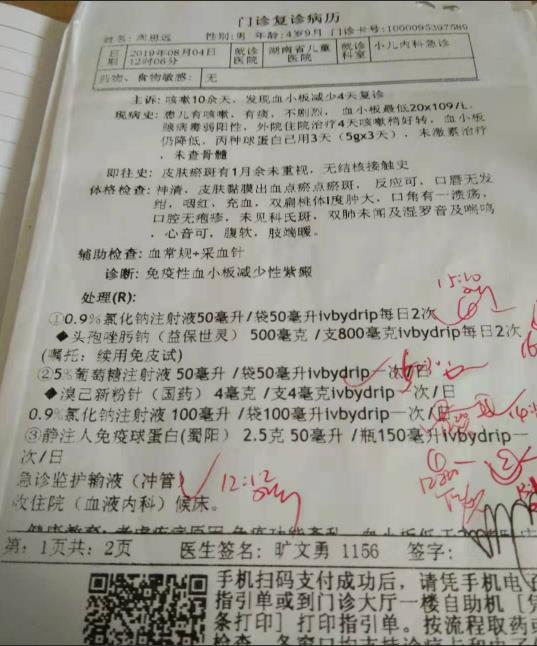 门诊复诊病历
姓名: 周思远 性别:男 年龄:4岁9月 门诊卡号:1000095397589
日期 2019年08月04日 12时06分 就诊医院 湖南省儿童医院 就诊科室 小儿内科急诊
药物、食物敏感: 无
主诉: 咳嗽10余天, 发现血小板减少4天复诊
现病史: 患儿有咳嗽, 有痰, 不剧烈, 血小板最低20x109/L.
腺病毒弱阳性, 外院住院治疗4天咳嗽稍好转, 血小板
仍降低, 丙种球蛋白已用3天 (5gx3天) , 未激素治疗
, 未查骨髓
即往史: 皮肤瘀斑有1月余未重视, 无结核接触史
体格检查: 神清, 皮肤黏膜出血点瘀点瘀斑, 反应可, 口唇无发
绀, 咽红, 充血, 双扁桃体I度肿大, 口角有一溃疡,
口腔无疱疹, 未见科氏斑, 双肺未闻及湿罗音及喘鸣
, 心音可, 腹软, 肢端暖。
辅助检查: 血常规+采血针
诊断: 免疫性血小板减少性紫癜
处理(R):
15:10
①0.9%氯化钠注射液50毫升/袋50毫升ivbydrip每日2次
◆头孢唑肟钠 (益保世灵) 500毫克 /支800毫克ivbydrip每日2次
(嘱托: 续用免皮试)
②5%葡萄糖注射液 50毫升 /袋50毫升ivbydrip一次/日
◆溴己新粉针 (国药) 4毫克 /支4毫克ivbydrip一次/日
0.9%氯化钠注射液 100毫升 /袋100毫升ivbydrip一次/日
③静注人免疫球蛋白(蜀阳) 2.5克 50毫升 /瓶150毫升ivbydrip一
次/日
急诊监护输液 (冲管)
12:12
收住院 (血液内科) 候床。
第: 1页共: 2页 医生签名: 旷文勇 1156 签字:
手机扫码支付成功后, 请凭手机电子
指引单或到门诊大厅一楼自助机 [凭
条打印] 打印指引单。按流程取药或